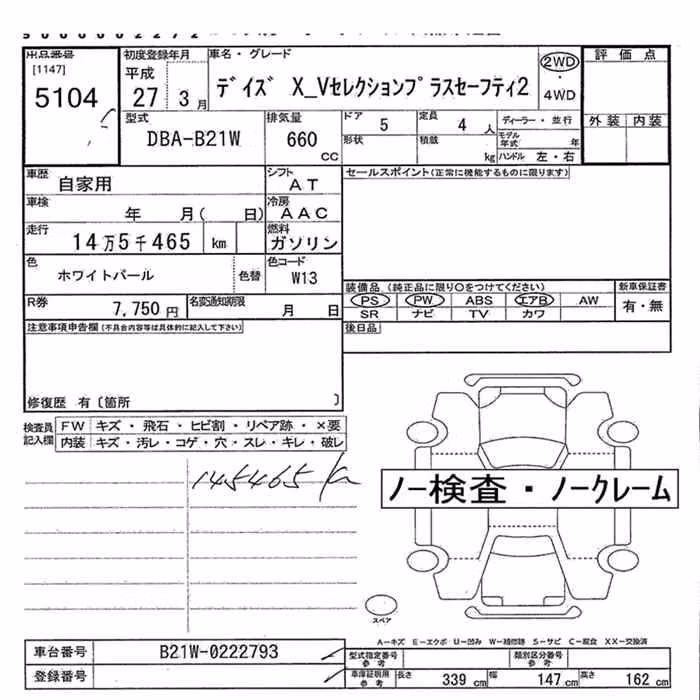 出品番号
[1147]
5104
初度登録年月
平成
27 3月
車名・グレード
デイズ X_Vセレクションプラスセーフティ2
2WD
・
4WD
評価点
外装 内装
型式
DBA-B21W
排気量
660
cc
ドア
5
定員
4 人
形状
積載
kg
ディーラー・並行
モデル年式 年
ハンドル 左・右
車歴
自家用
シフト
AT
セールスポイント(正常に機能するものに限ります)
車検
年 月( 日)
冷房
AAC
走行
14万5千465 km
燃料
ガソリン
色
ホワイトパール
色替
色コード
W13
装備品 (純正品に限り○をつけてください)
新車保証書
PS PW ABS エアB AW
有・無
SR ナビ TV カワ
R券
7,750 円
名変通知期限
月 日
後日品
注意事項申告欄(不具合内容等は具体的に記入して下さい)
修復歴 有〔箇所 〕
検査員記入欄
FW キズ・飛石・ヒビ割・リペア跡・×要
内装 キズ・汚レ・コゲ・穴・スレ・キレ・破レ
145465 km
ノー検査・ノークレーム
スペア
A-キズ E-エクボ U-凹み W-補修跡 S-サビ C-腐食 XX-交換済
車台番号 B21W-0222793
登録番号
型式指定番号
参考
類別区分番号
参考
車庫証明用
参考
長さ 339 cm 幅 147 cm 高さ 162 cm